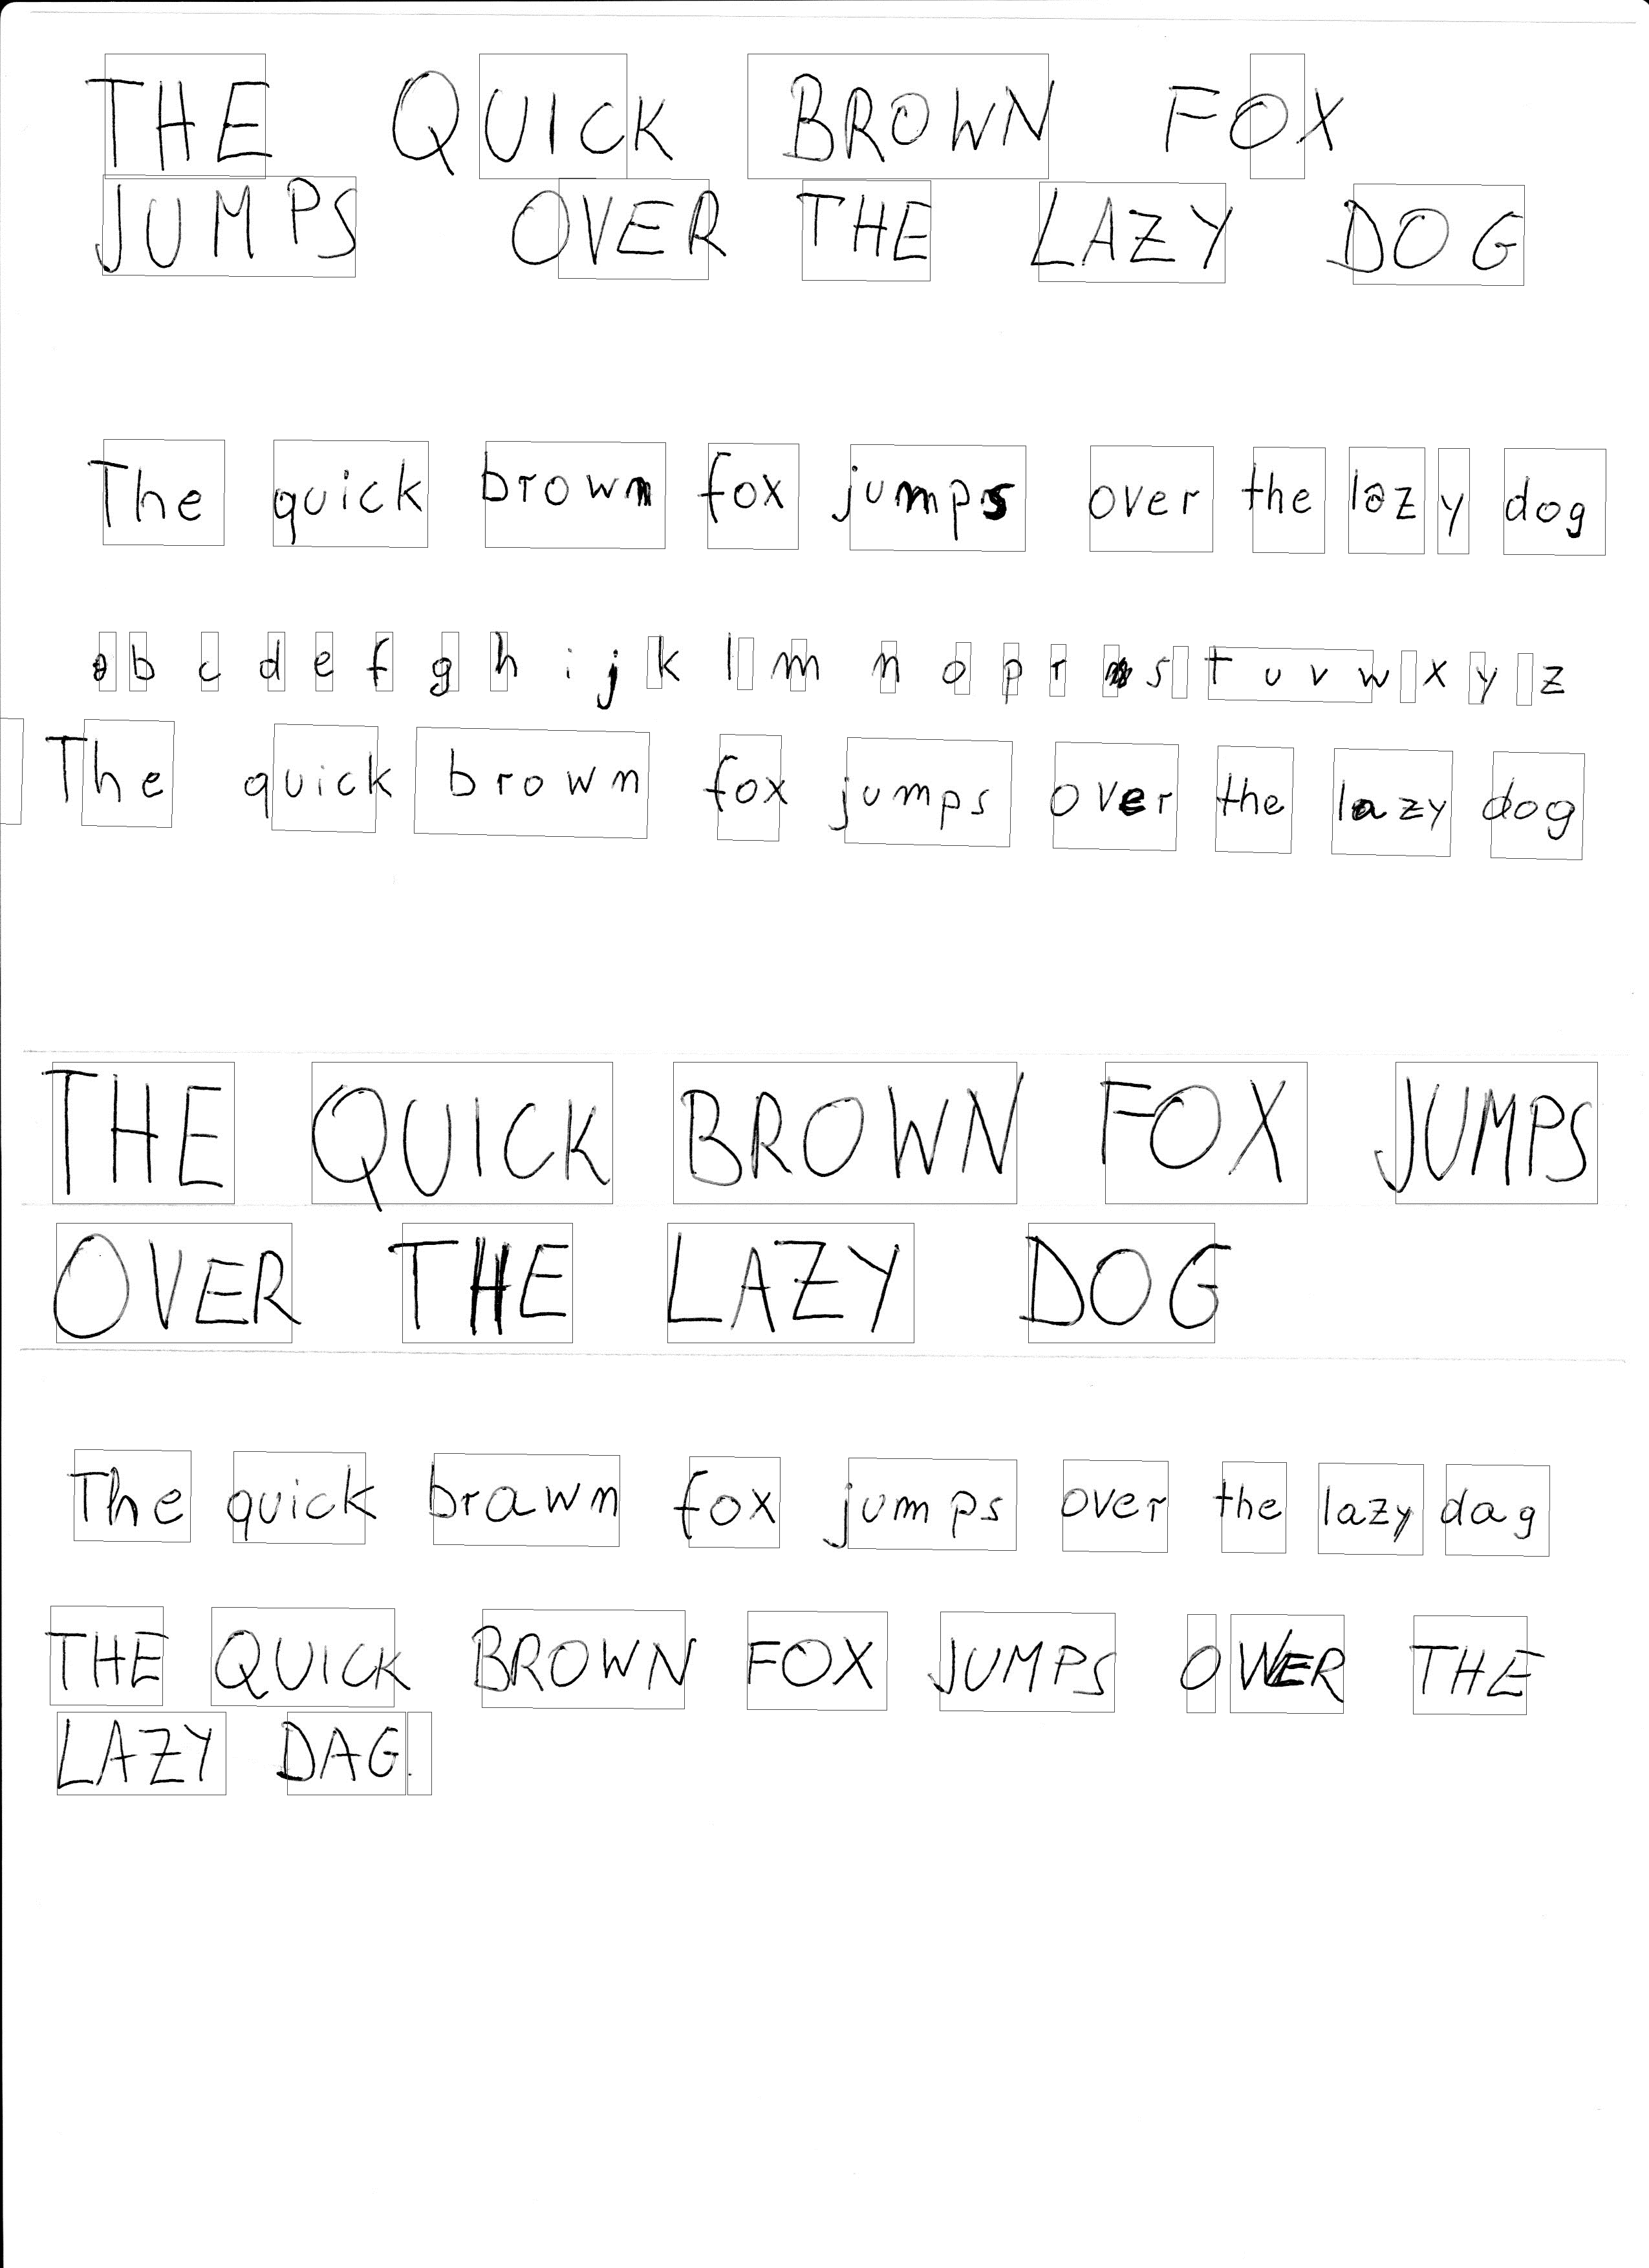 THE QUICK BROWN FOX
JUMPS OVER THE LAZY DOG
The quick brown fox jumps over the lazy dog
a b c d e f g h i j k l m n o p r s t u v w x y z
The quick brown fox jumps over the lazy dog
THE QUICK BROWN FOX JUMPS
OVER THE LAZY DOG
The quick brawn fox jumps over the lazy dag
THE QUICK BROWN FOX JUMPS OVER THE
LAZY DAG.